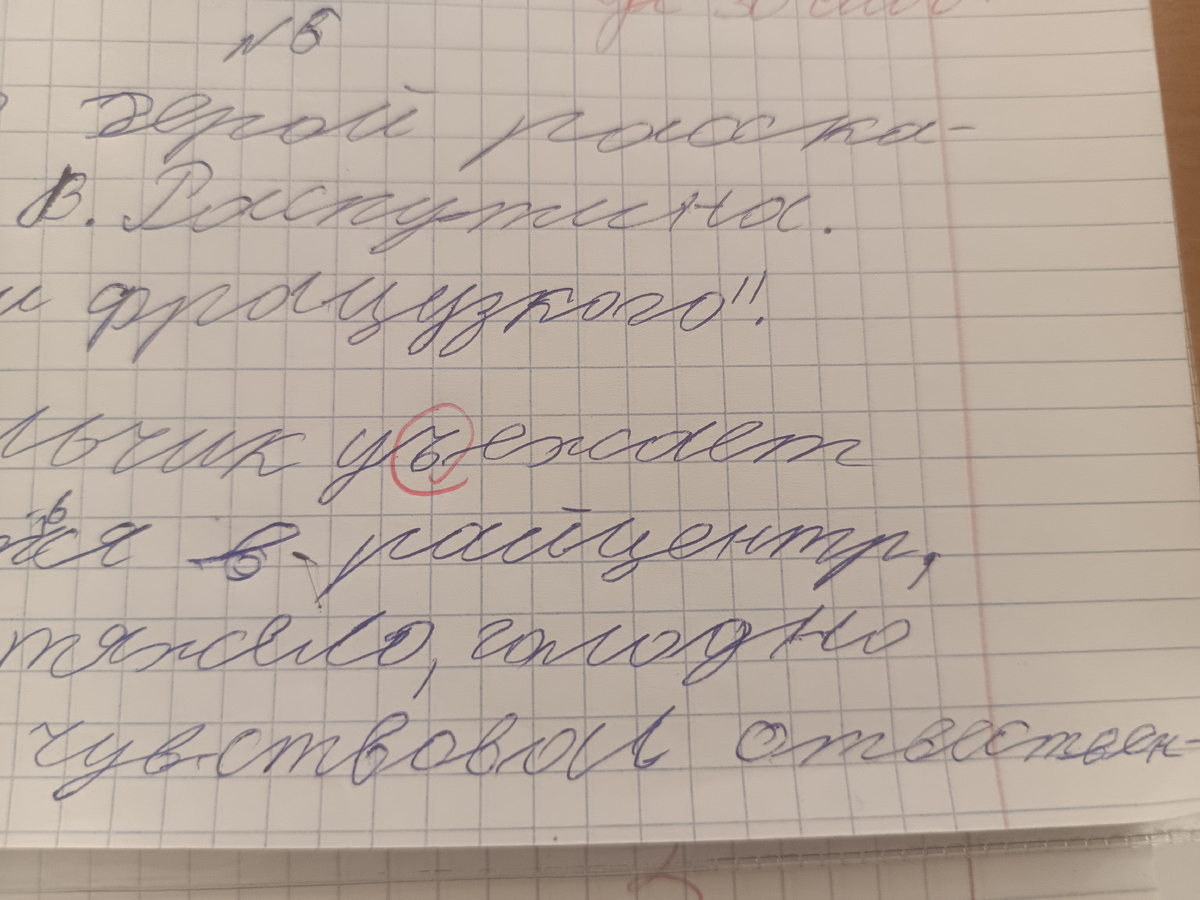 №6
герой расска-
В. Распутина.
и фрацузкого".
льчик уъежает
ся в райцентр,
тяжело, голодно
чувствовал отвествен-